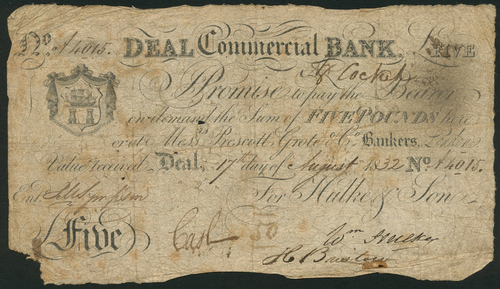 No. A4015. DEAL Commercial BANK. FIVE
I Promise to pay the Bearer
on demand the Sum of FIVE POUNDS here
or at Messrs Prescott, Grote & Co Bankers, London
Value received Deal, 17th day of August 1832 No. A4015.
Entd For Hulke & Son
Five Cash 50 Wm Hulke
H Barstow